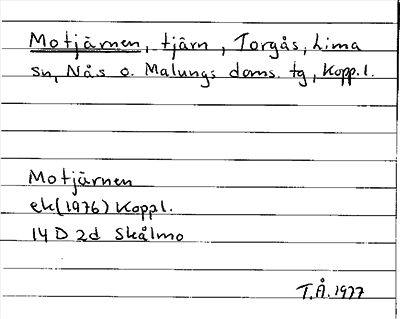 Motjärnen, tjärn, Torgås, Lima
sn, Nås o. Malungs doms. tg, Kopp.l.
Motjärnen
ek(1976) Koppl.
14 D 2d Skålmo
T.Å. 1977